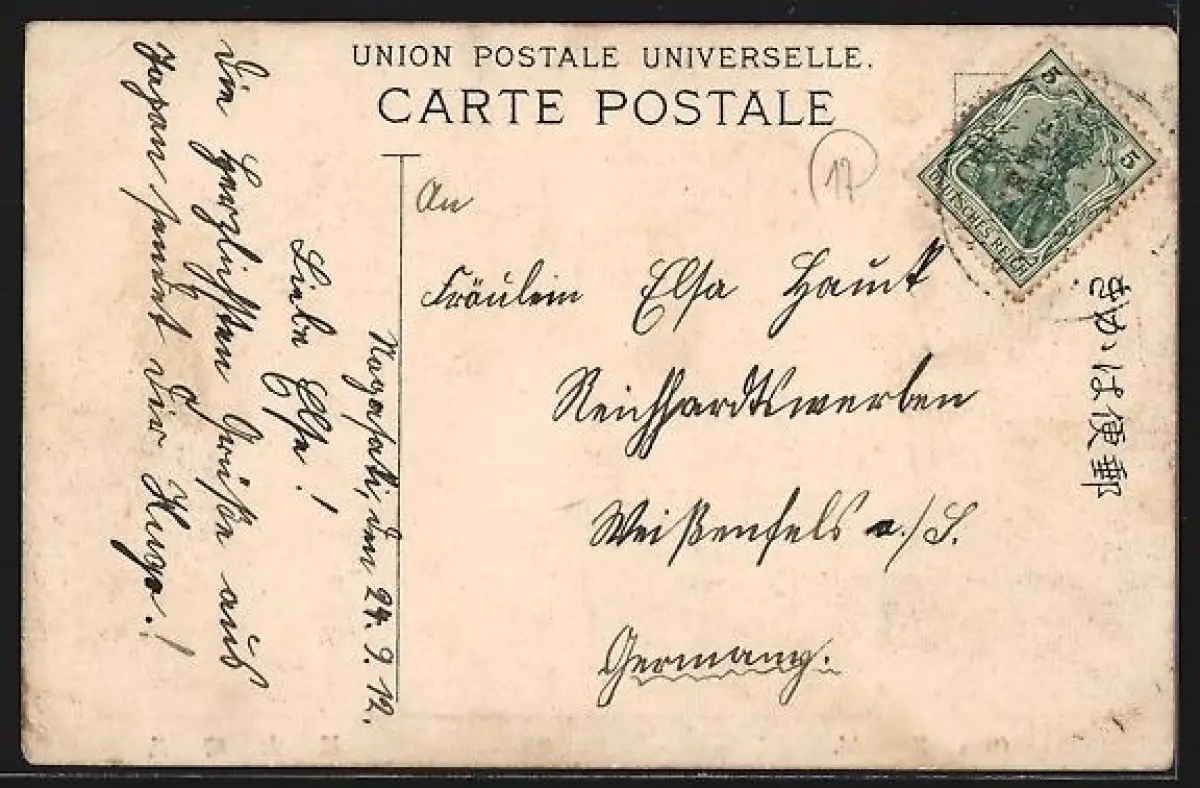 UNION POSTALE UNIVERSELLE.
CARTE POSTALE
17
5
5
DEUTSCHES REICH
An
Fräulein Elsa Hauck
Reichhardtswerben
Weißenfels a./S.
Germany.
きかは便郵
Nagasaki, den 24. 9. 12.
Liebe Elsa!
Die herzlichsten Grüße aus
Japan sendet Dir Hugo.!